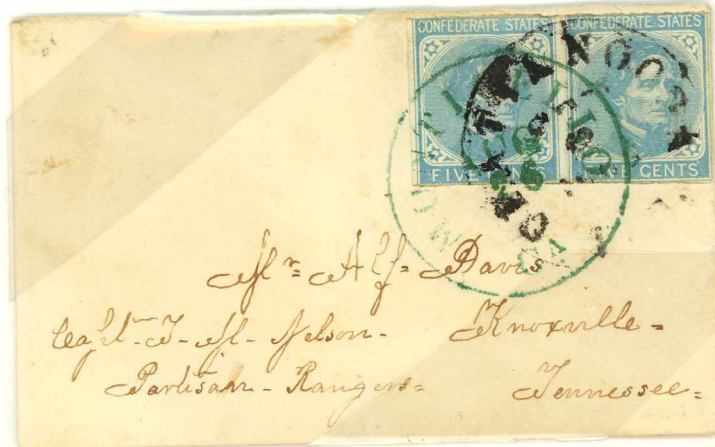 CONFEDERATE STATES CONFEDERATE STATES
FIVE CENTS FIVE CENTS
Mr= Alf= Davis
Capt- T- M- Nelson- Knoxville-
Partisan- Rangers= Tennessee=